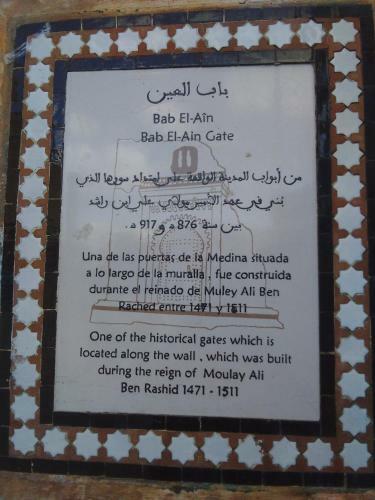 باب العين
Bab El-Aîn
Bab El-Ain Gate
من أبواب المدينة الواقعة على امتداد سورها الذي
بني في عهد الأمير مولاي علي ابن راشد
بين سنة 876 ه و 917 ه.
Una de las puertas de la Medina situada
a lo largo de la muralla , fue construida
durante el reinado de Muley Ali Ben
Rached entre 1471 y 1511
One of the historical gates which is
located along the wall , which was built
during the reign of Moulay Ali
Ben Rashid 1471 - 1511